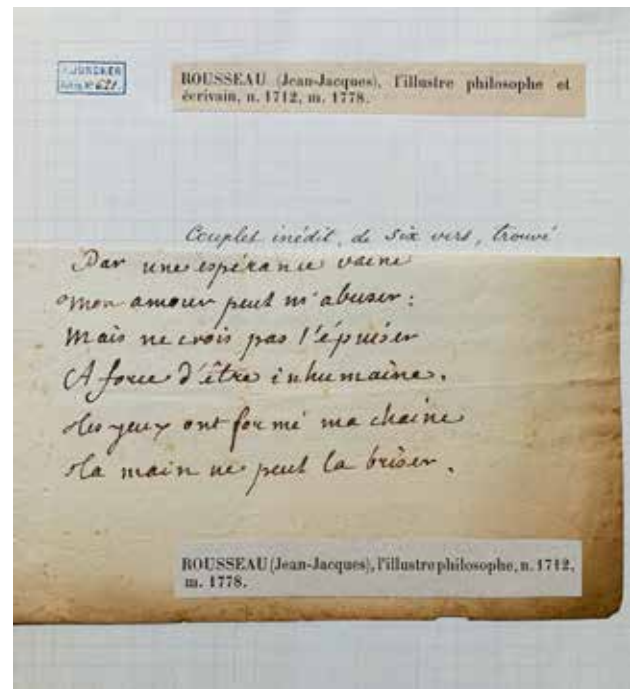 P. JUNCKER
ROUSSEAU (Jean-Jacques), l'illustre philosophe et
écrivain, n. 1712, m. 1778.
Couplet inédit, de six vers, trouvé
Par une espérance vaine
Mon amour peut m'abuser :
Mais ne crois pas l'épuiser
A force d'être inhumaine.
Tes yeux ont formé ma chaine
Ta main ne peut la briser.
ROUSSEAU (Jean-Jacques), l'illustre philosophe, n. 1712,
m. 1778.